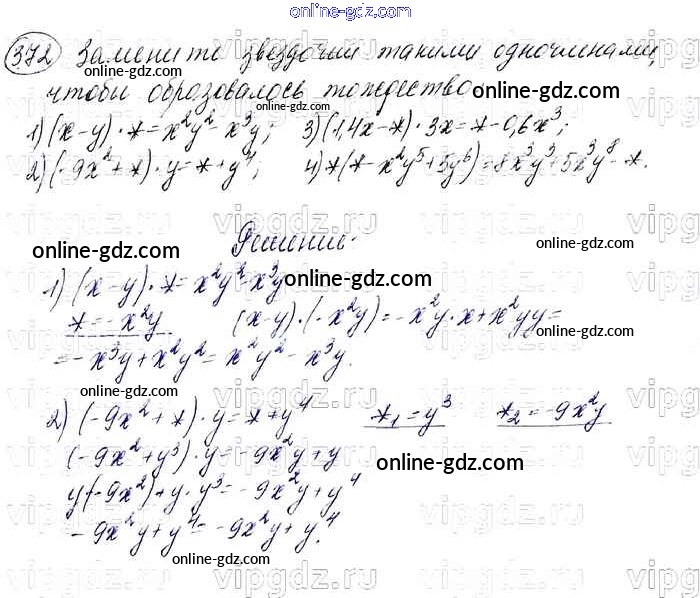 online-gdz.com
372 Замените звездочки такими одночленами,
online-gdz.com
чтобы образовалось тождество
online-gdz.com
online-gdz.com
1) (x-y)·*=x²y²-x³y; 3) (1,4x-*)·3x=*-0,6x³;
2) (-9x²+*)·y=*+y⁴; 4) *(*-x²y⁵+5y⁶)=8x³y³+5x³y⁸-*.
vipgdz.ru
online-gdz.com
Решение:
online-gdz.com
1) (x-y)·*=x²y²-x³y
online-gdz.com
*=-x²y (x-y)·(-x²y)=-x²y·x+x²yy=
=-x³y+x²y²=x²y²-x³y.
online-gdz.com
2) (-9x²+*)·y=*+y⁴ *₁=y³ *₂=-9x²y
(-9x²+y³)·y=-9x²y+y
online-gdz.com
y(-9x²)+y·y³=-9x²y+y⁴
-9x²y+y⁴=-9x²y+y⁴.
online-gdz.com
online-gdz.com
vipgdz.ru